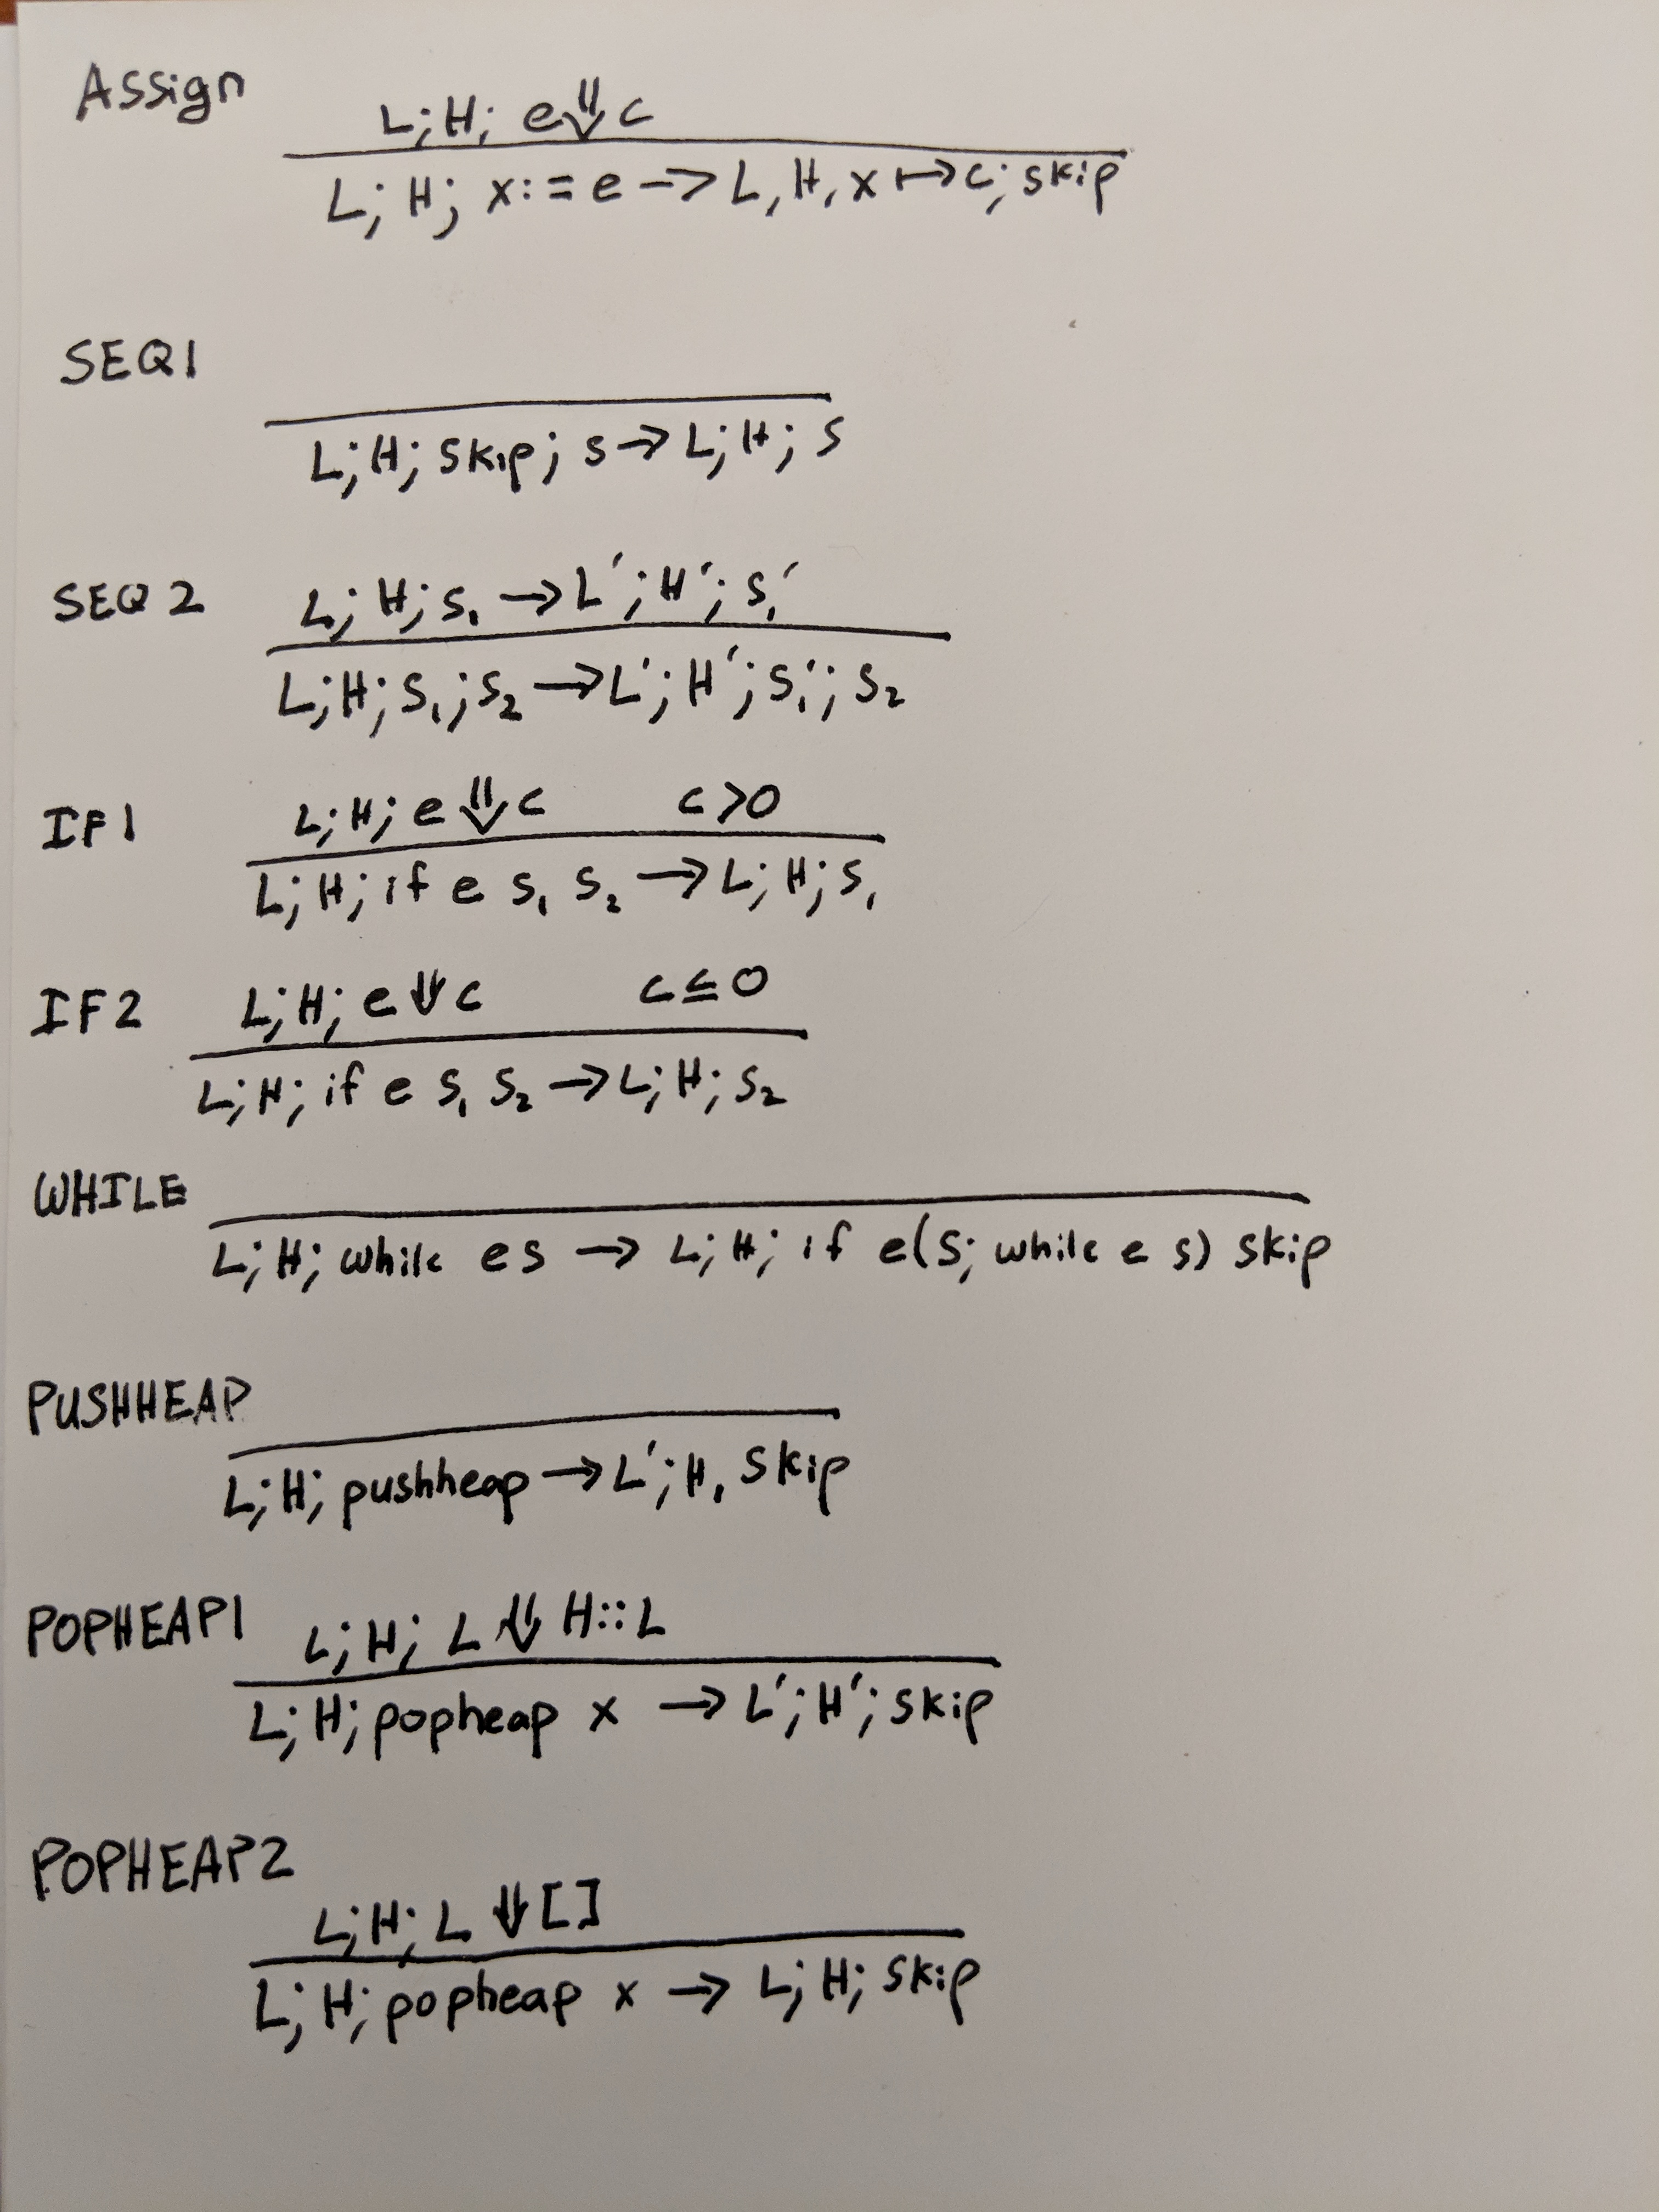 Assign
L;H; e⇓c
L; H; x:=e → L,H,x↦c; skip
SEQ1
L;H; skip; s → L;H; s
SEQ2
L; H; s₁ → L′; H′; s₁′
L;H; s₁; s₂ → L′; H′; s₁′; s₂
IF1
L;H; e⇓c c>0
L; H; if e s₁ s₂ → L; H; s₁
IF2
L;H; e⇓c c≤0
L;H; if e s₁ s₂ → L; H; s₂
WHILE
L; H; while e s → L; H; if e(s; while e s) skip
PUSHHEAP
L;H; pushheap → L′; H, skip
POPHEAP1
L; H; L ⇓ H::L
L; H; popheap x → L′; H′; skip
POPHEAP2
L;H; L ⇓ []
L; H; popheap x → L; H; skip